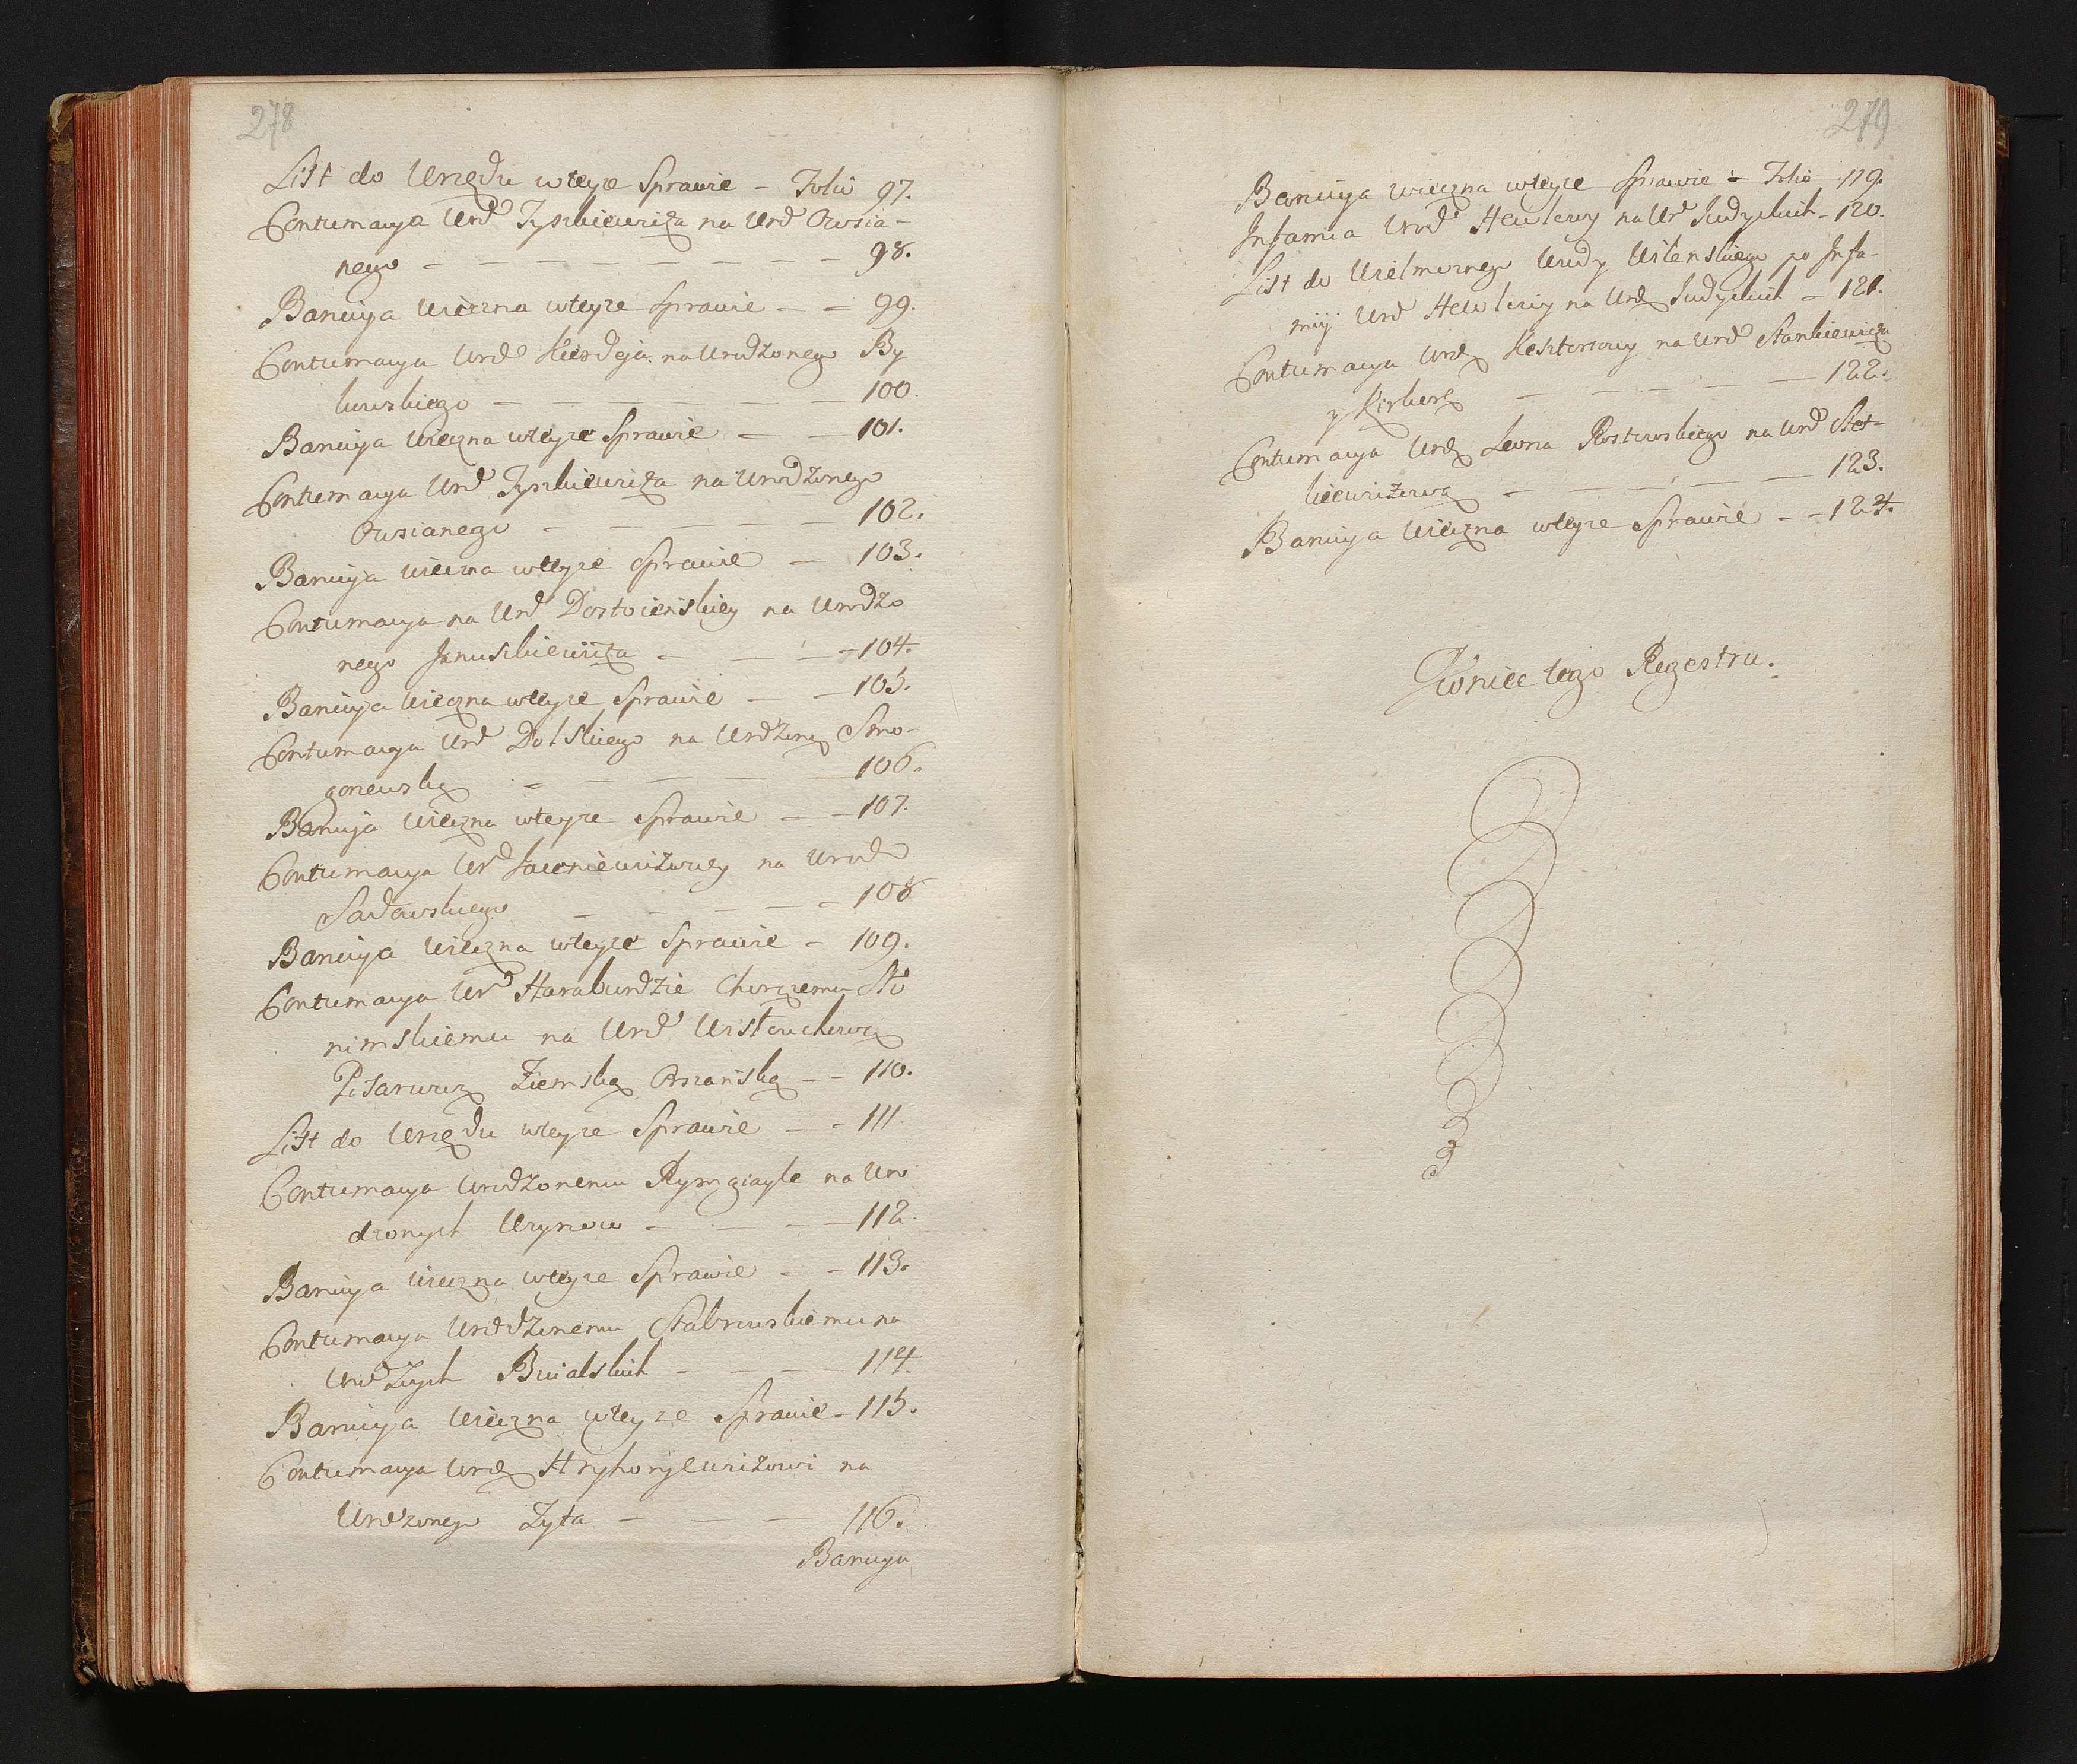 278
List do Urzędu wteyze Sprawie – Folio 97.
Contumacya Urd Tyszkiewicza na Urd Owsia-
nego – – – – – – – – 98.
Banicya wieczna wteyze sprawie – – 99.
Contumacya Urd na Urodzonego By
kowskiego – – – – – – – 100.
Banicya wieczna wteyze Sprawie – – 101.
Contumacya Urd Tyszkiewicza na Urodzonego
Owsianego – – – – – – 102.
Banicya wieczna wteyze Sprawie – 103.
Contumacya na Urd Dostoieńskiey na Urodzo
nego Januszkiewicza – – – – 104.
Banicya wieczna wteyze Sprawie – – 105.
Contumacya Urd Dolskiego na Urdzoną Smo-
goniewską – – – – – 106.
Banicya wieczna wteyze Sprawie – – 107.
Contumacya Ur na Urod
Sadowskiego – – – – – 108
Banicya wieczna wteyze Sprawie – 109.
Contumacya Ur Haraburdzie Chorążemu Sło
nimskiemu na Urd Wisłouchową
Pisarzową Ziemską Orszańską – – 110.
List do Urzędu wteyze Sprawie – – 111
Contumacya Urodzonemu Rymgiayle na Uro
dzonych – – – – 112.
Banicya wieczna wteyze Sprawie – – 113.
Contumacya Urodzonemu Stabrowskiemu na
Urodzych Buialskich – – – – 114.
Banicya wieczna wteyze Sprawie – 115.
Contumacya Urd Hryhorylewiczowi na
Urodzonego Zyta – – – 116.
Banicya
279
Banicya wieczna wteyze Sprawie – Folio 119.
Infamia Urod na Ur Judyckich – 120.
List do Wielmoznego Wudy Wilenskiego po Infa-
mij Urd na Urd Judyckich – 121.
Contumacya Urd na Urd Stankiewicza
y – – – – – 122.
Contumacya Urd Leona Rostowskiego na Urd Stet-
kiewiczową – – – – – 123.
Banicya wieczna wteyze Sprawie – – 124.
Koniec tego Regestru.